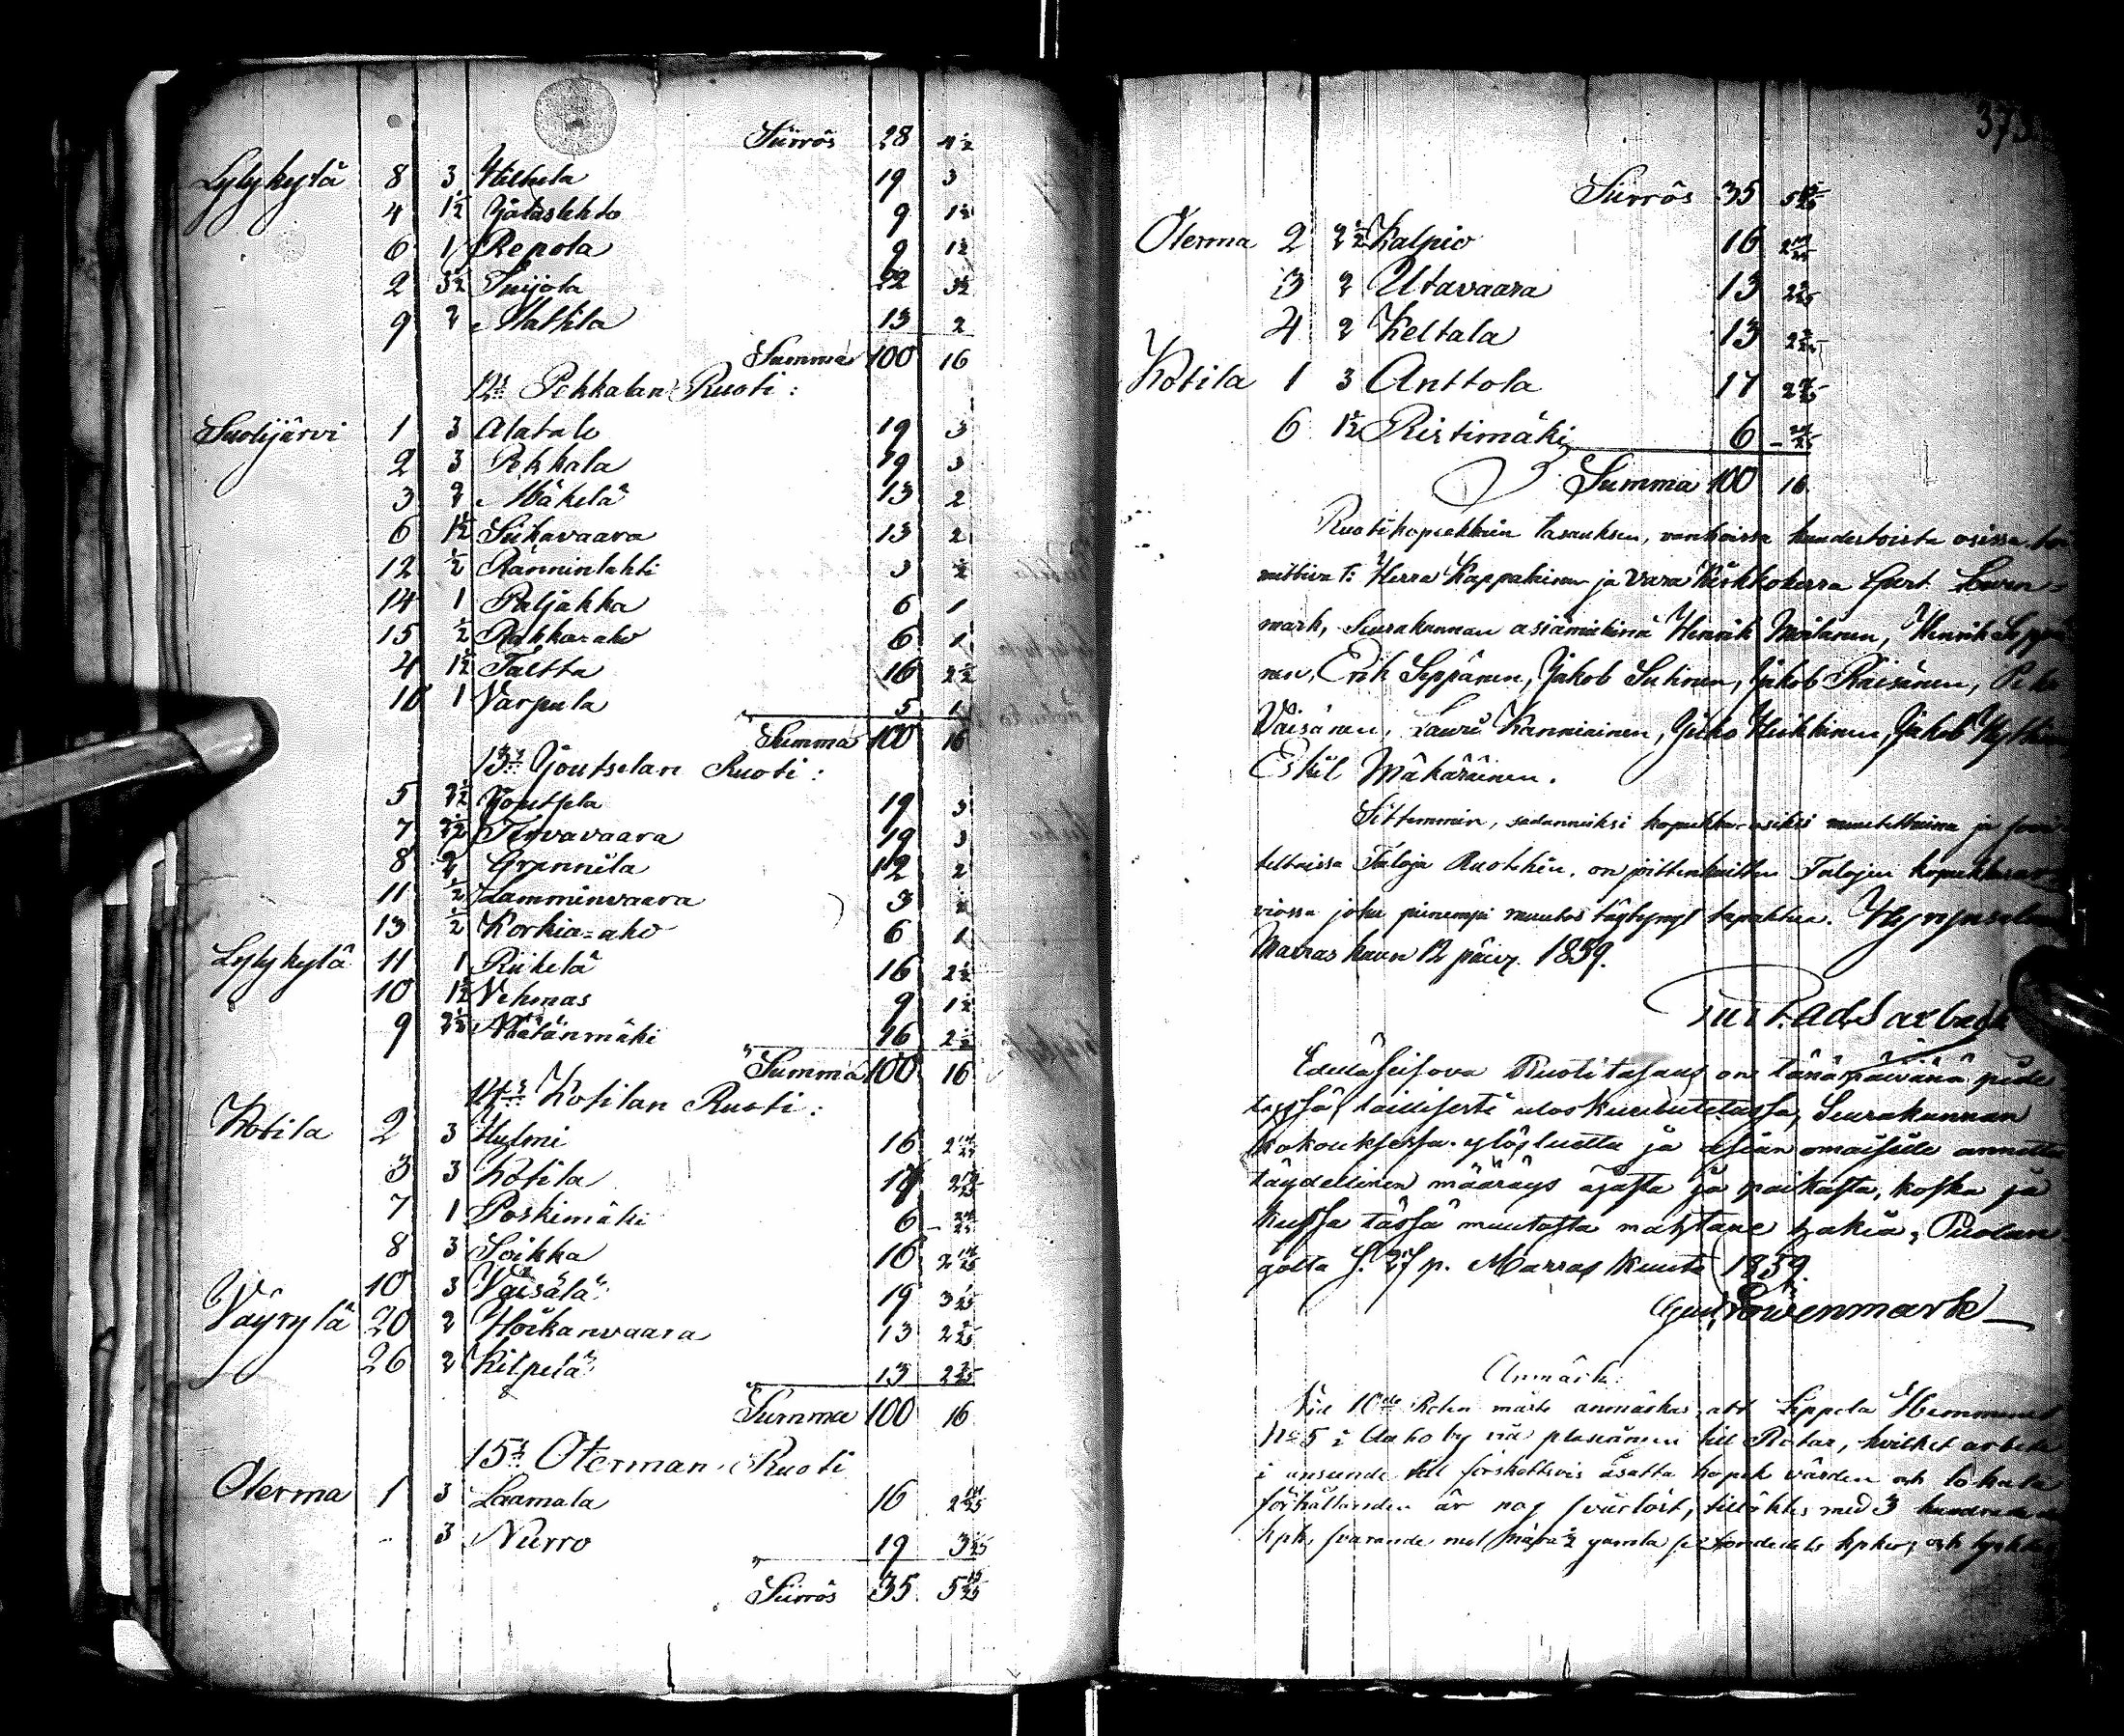 Siirrös 28 4½
Lylykylä 8 3 Hilkula 19 3
4 1½ Jätäslehto 9 1½
6 1 Repola 9 1½
2 3½ Suijola 22 3½
9 2 Mattila 13 2
Summa 100 16
12s Pekkalan Ruoti:
Suolijärvi 1 3 Alatalo 19 3
2 3 Pekkala 19 3
3 2 Mäkelä 13 2
6 1½ Siikavaara 13 2
12 ½ Ränninlahti 3 ½
14 1 Paljakka 6 1
15 ½ Rakkaraho 6 1
4 1½ Taltta 16 2½
16 1 Varpula 5 1
Summa 100 16
13s Joutselan Ruoti:
5 2½ Joutsela 19 3
7 2½ Tervavaara 19 3
8 2 Grannila 12 2
11 ½ Lamminvaara 3 ½
13 ½ Korkia=aho 6 1
Lylykylä 11 1 Riihelä 16 2½
10 1½ Vehmas 9 1½
9 2½ Näätänmäki 16 2½
Summa 100 16
14s Kotilan Ruoti:
Kotila 2 3 Hylmi 16 2 14/25
3 3 Kotila 17
7 1 Poskimäki 6 - 24/25
8 3 Soikka 16 2 14/25
10 3 Väisälä 19 3 1/25
Väyrylä 20 2 Hoikanvaara 13 2 2/25
26 2 Kilpelä 13 2 2/25
Summa 100 16
15s Oterman Ruoti
Oterma 1 3 Laamala 16 2 14/25
- 3 Nurro 19 3 1/25
Siirrös 35 5 15/25
Siirrös 35 5 15/25
Oterma 2 2½ Kalpio 16 2 14/25
3 2 Utavaara 13 2 2/25
4 2 Keltala 13 2 2/25
Kotila 1 3 Anttola 17
6 1½ Ristimäki 6 - 24/25
Summa 100 16
Ruotikopeekkain tasauksen, vanhoissa kuudestoista osissa
mittivat: Herra Kappalainen ja Vara Kirkkoherra Gust. Löwen=
mark, Seurakunnan asiamiehinä Henrik Moilanen, Henrik Seppä
nen, Erik Seppänen, Jakob Suhonen, Jakob Räisänen,
Väisänen, Lauri Kanniainen, Juho Heikkinen, Jakob
Eskil Mäkäräinen.
Sittemmin, sadanneiksi kopeekka-osiksi muutettaissa ja
teltaissa Taloja Ruotehin, on joittenkuitten Talojen
viossa joku pienempi muutos täytynyt tapahtua. Hyrynsalmi
Marraskuun 12 päiv. 1859.
Edelläseisova Ruotitasaus on tänäpäivänä pide
tyssä, laillisesti uloskuulutetassa, Seurakunnan
kokouksessa ylösluettu ja asian omaisille annettu
täydellinen määräys ajasta ja paikasta, koska ja
kussa tässä muutosta mahtane hakia; Puolan
galta S. 27 p. Marras kuuta 1859.
Gust. Löwenmark
Anmärk:
Vid 10de Roten märke anmärkas, att Leppela Hemmanet
No 5 i Aaho by vid placeringen till Rotar, hvilket arbete
i anseende till förskottsvis åsatta kopek värden och lokala
förhållanden är nog svårlöst, tillökts med 3 hundrade
kpk, svarande mot ½ gamla kpkor,